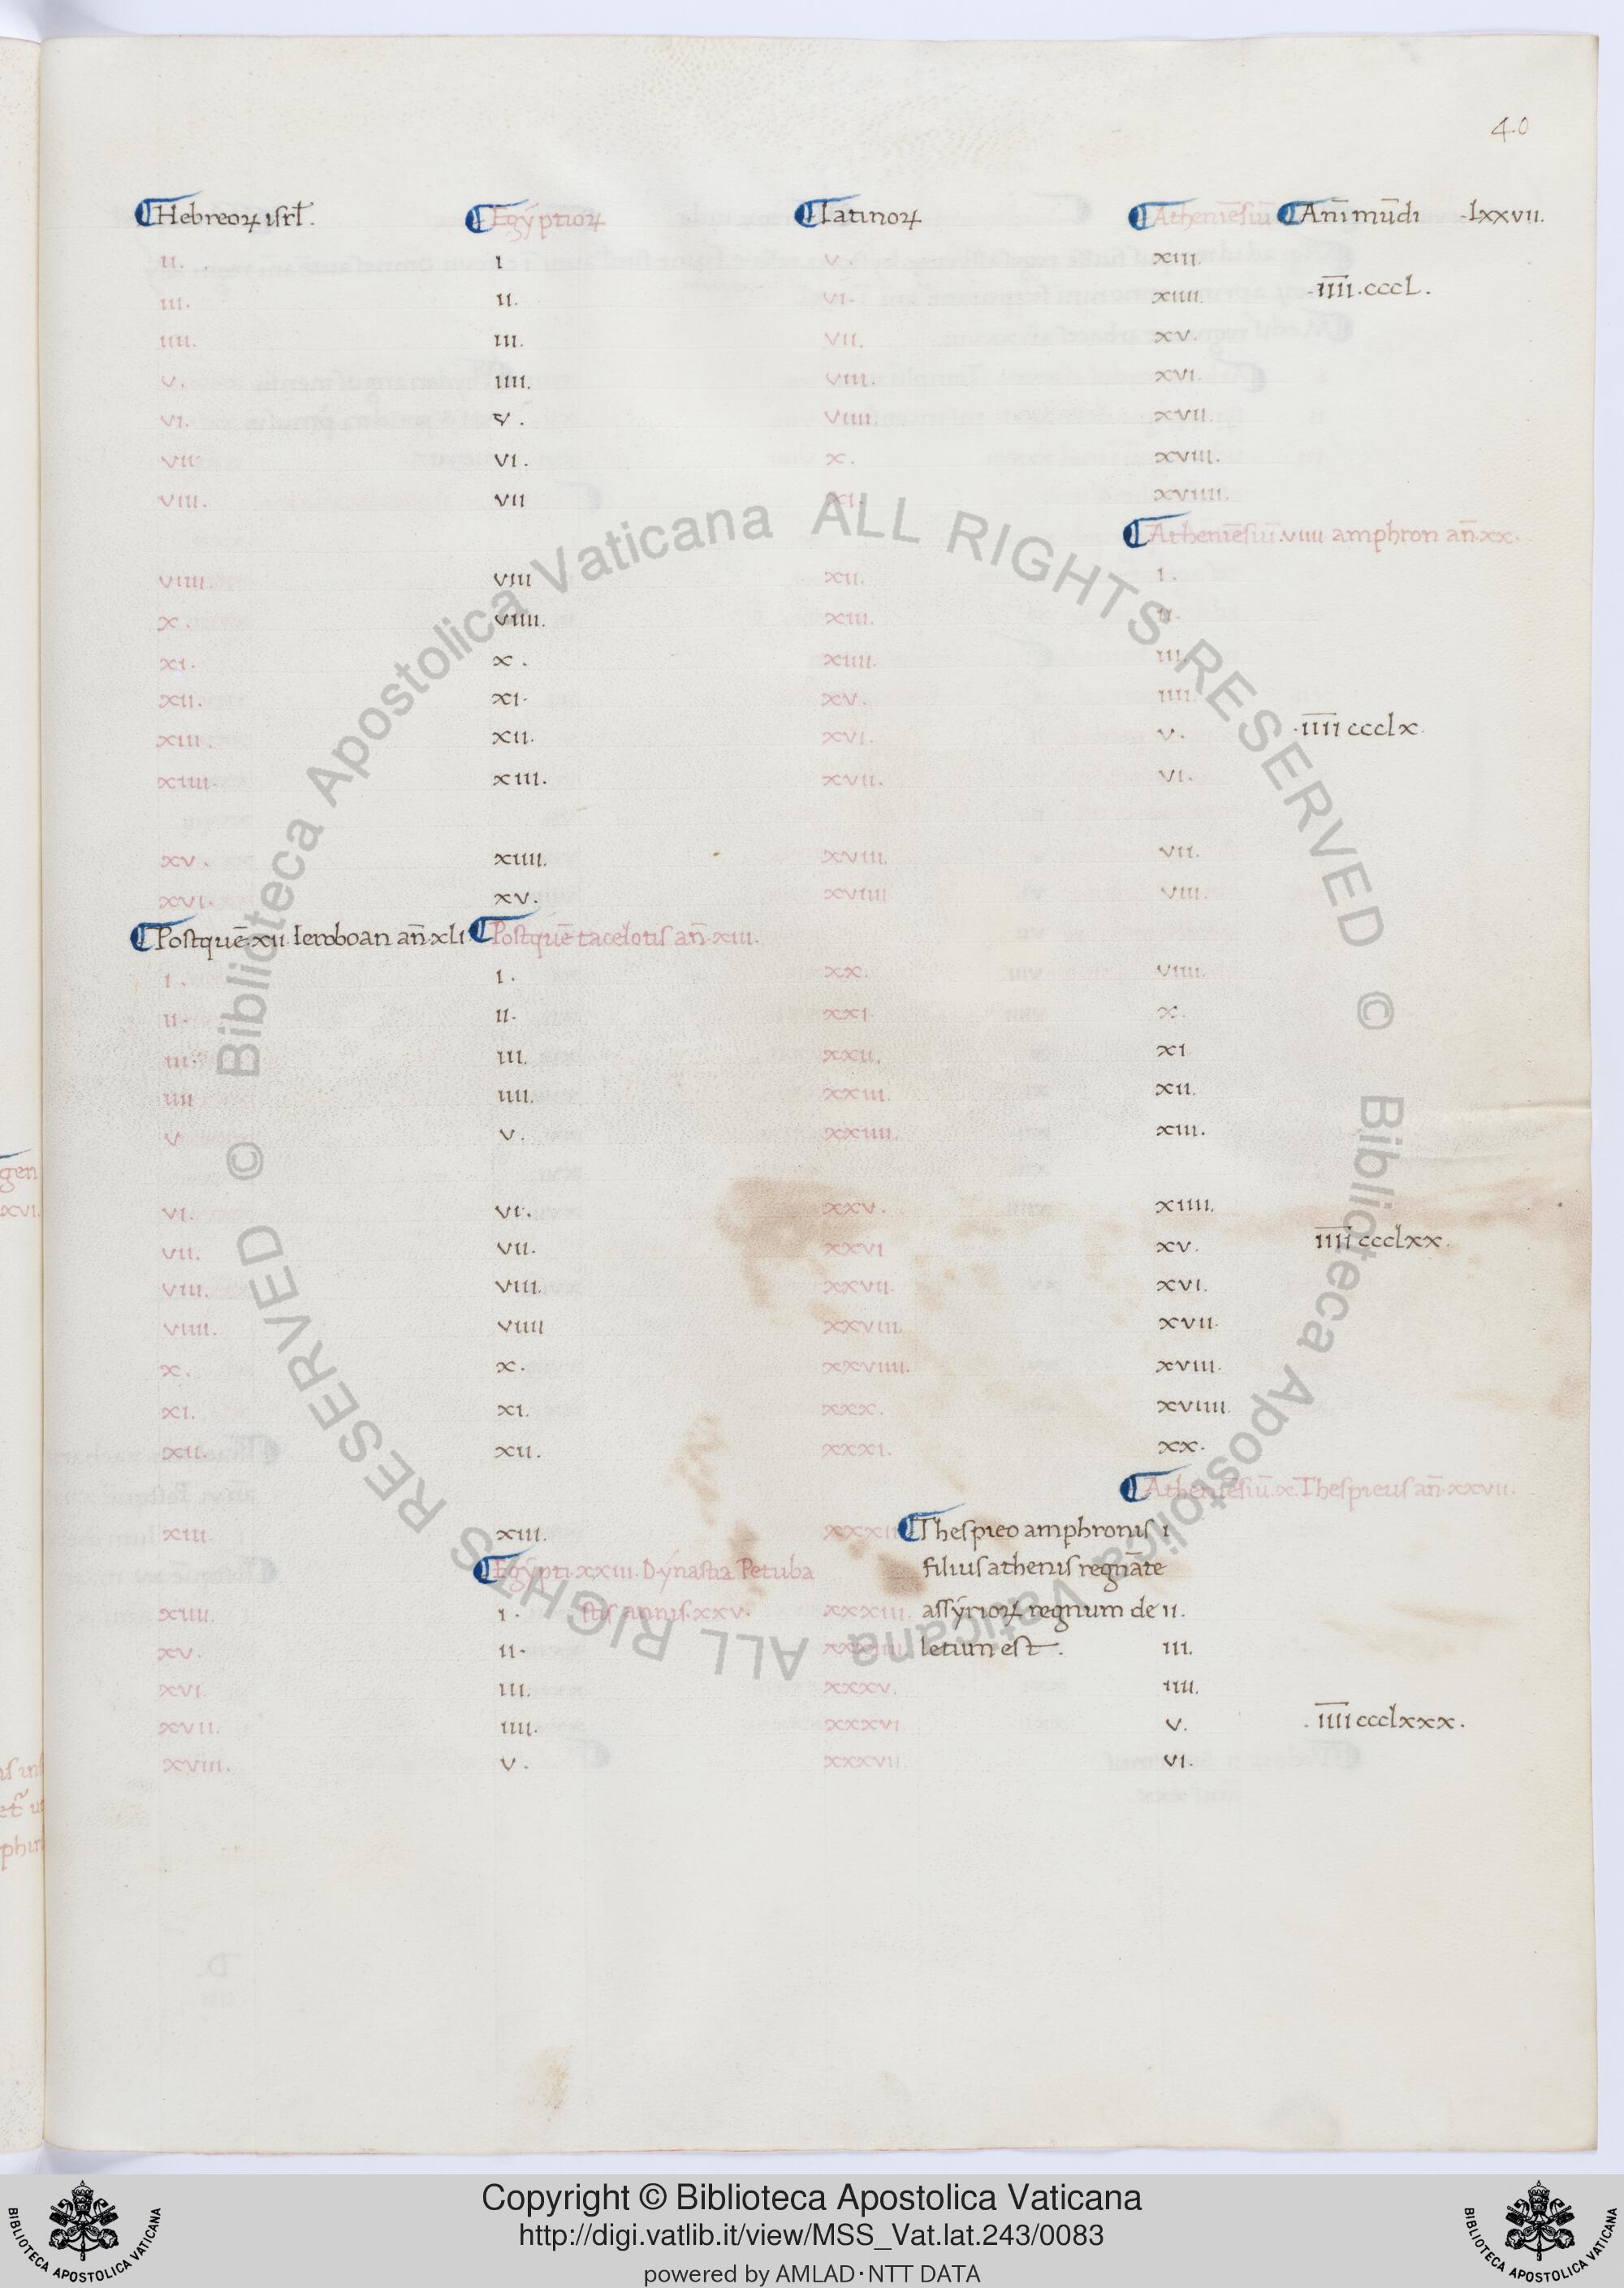 4.0
Hebreoꝝ iſrł. Egyptioꝝ Latinoꝝ Atheniēſiū Añi mūdi ·lxxvii.
ii. i v. xiii.
iii. ii. vi. xiiii. ·i̅i̅i̅i̅.cccL.
iiii. iii. vii. xv.
v. iiii. viii. xvi.
vi. v. viiii. xvii.
vii. vi. x. xviii.
viii. vii xi. xviiii.
Atheniēſiū.viiii amphron añ.xx.
viiii. viii xii. i.
x. viiii. xiii. ii.
xi. x. xiiii. iii.
xii. xi. xv. iiii.
xiii. xii. xvi. v. ·i̅i̅i̅i̅ ccclx.
xiiii. xiii. xvii. vi.
xv. xiiii. xviii. vii.
xvi. xv. xviiii viii.
Poſtquē.xii Ieroboan añ.xli Poſtquē tacelotiſ añ.xiii.
i. i. xx. viiii.
ii. ii. xxi. x.
iii. iii. xxii. xi
iiii iiii. xxiii. xii.
v v. xxiiii. xiii.
vi. vi. xxv. xiiii.
vii. vii. xxvi xv. i̅i̅i̅i̅ ccclxx.
viii. viii. xxvii. xvi.
viiii. viiii xxviii. xvii.
x. x. xxviiii. xviii.
xi. xi. xxx. xviiii.
xii. xii. xxxi. xx.
Atheniēſiū.x.Theſpieuſ añ.xxvii.
xiii. xiii. xxxii Theſpieo amphroniſ i
Egypti.xxiii.Dynaſtia Petuba filiuſ atheniſ regnāte
xiiii. i. ſtiſ anniſ.xxv. xxxiii. aſſyrioꝝ regnum de ii.
xv. ii. xxxiiii. letium eſt. iii.
xvi. iii. xxxv. iiii.
xvii. iiii. xxxvi v. ·i̅i̅i̅i̅ ccclxxx.
xviii. v. xxxvii. vi.
gen
xvi.
© Biblioteca Apostolica Vaticana ALL RIGHTS RESERVED © Biblioteca Apostolica Vaticana ALL RIGHTS RESERVED
Copyright © Biblioteca Apostolica Vaticana
http://digi.vatlib.it/view/MSS_Vat.lat.243/0083
powered by AMLAD·NTT DATA
BIBLIOTECA APOSTOLICA VATICANA
BIBLIOTECA APOSTOLICA VATICANA